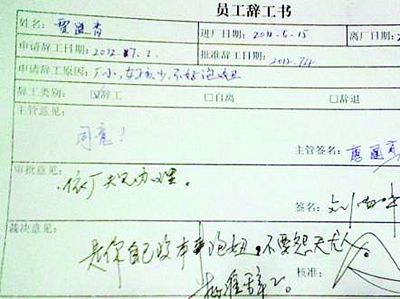 员工辞工书
姓名: 进厂日期: 2011.5.15 离厂日期: 2
申请辞工日期: 2012.7.2. 批准辞工日期: 2012.7.4
申请辞工原因: 厂小,女孩少,不好泡妞
辞工类别: ☑辞工 □自离 □辞退
主管意见:
同意!
主管签名:
审批意见:
依厂规办理。
签名:
裁决意见:
是你自己没本事泡妞,不要怨天尤人
核准:
批准辞工。